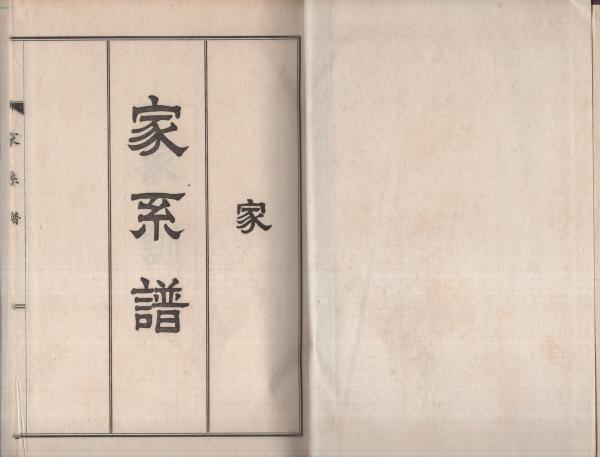 家
家系譜
家系譜